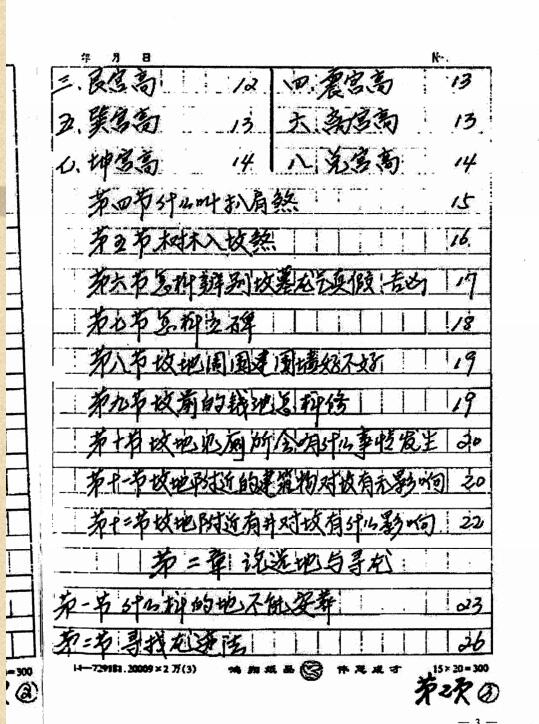 年 月 日 №.
三.艮宫高 12 四.震宫高 13
五.巽宫高 13 六.离宫高 13
七.坤宫高 14 八.兑宫高 14
第四节什么叫扒肩煞 15
第五节树木入坟煞 16
第六节怎样辨别坟墓龙气真假吉凶 17
第七节怎样立碑 18
第八节坟地周围建围墙好不好 19
第九节坟前的钱池怎样修 19
第十节坟地见厕所会有什么事情发生 20
第十一节坟地附近的建筑物对坟有无影响 20
第十二节坟地附近有井对坟有什么影响 22
第二章 说选地与寻龙
第一节 什么样的地不能安葬 23
第二节 寻找龙迹法 26
=300 14—729181.20009×2万(3) 纸品 伴您成才 15×20=300
第2页 ③
②
— 3 —